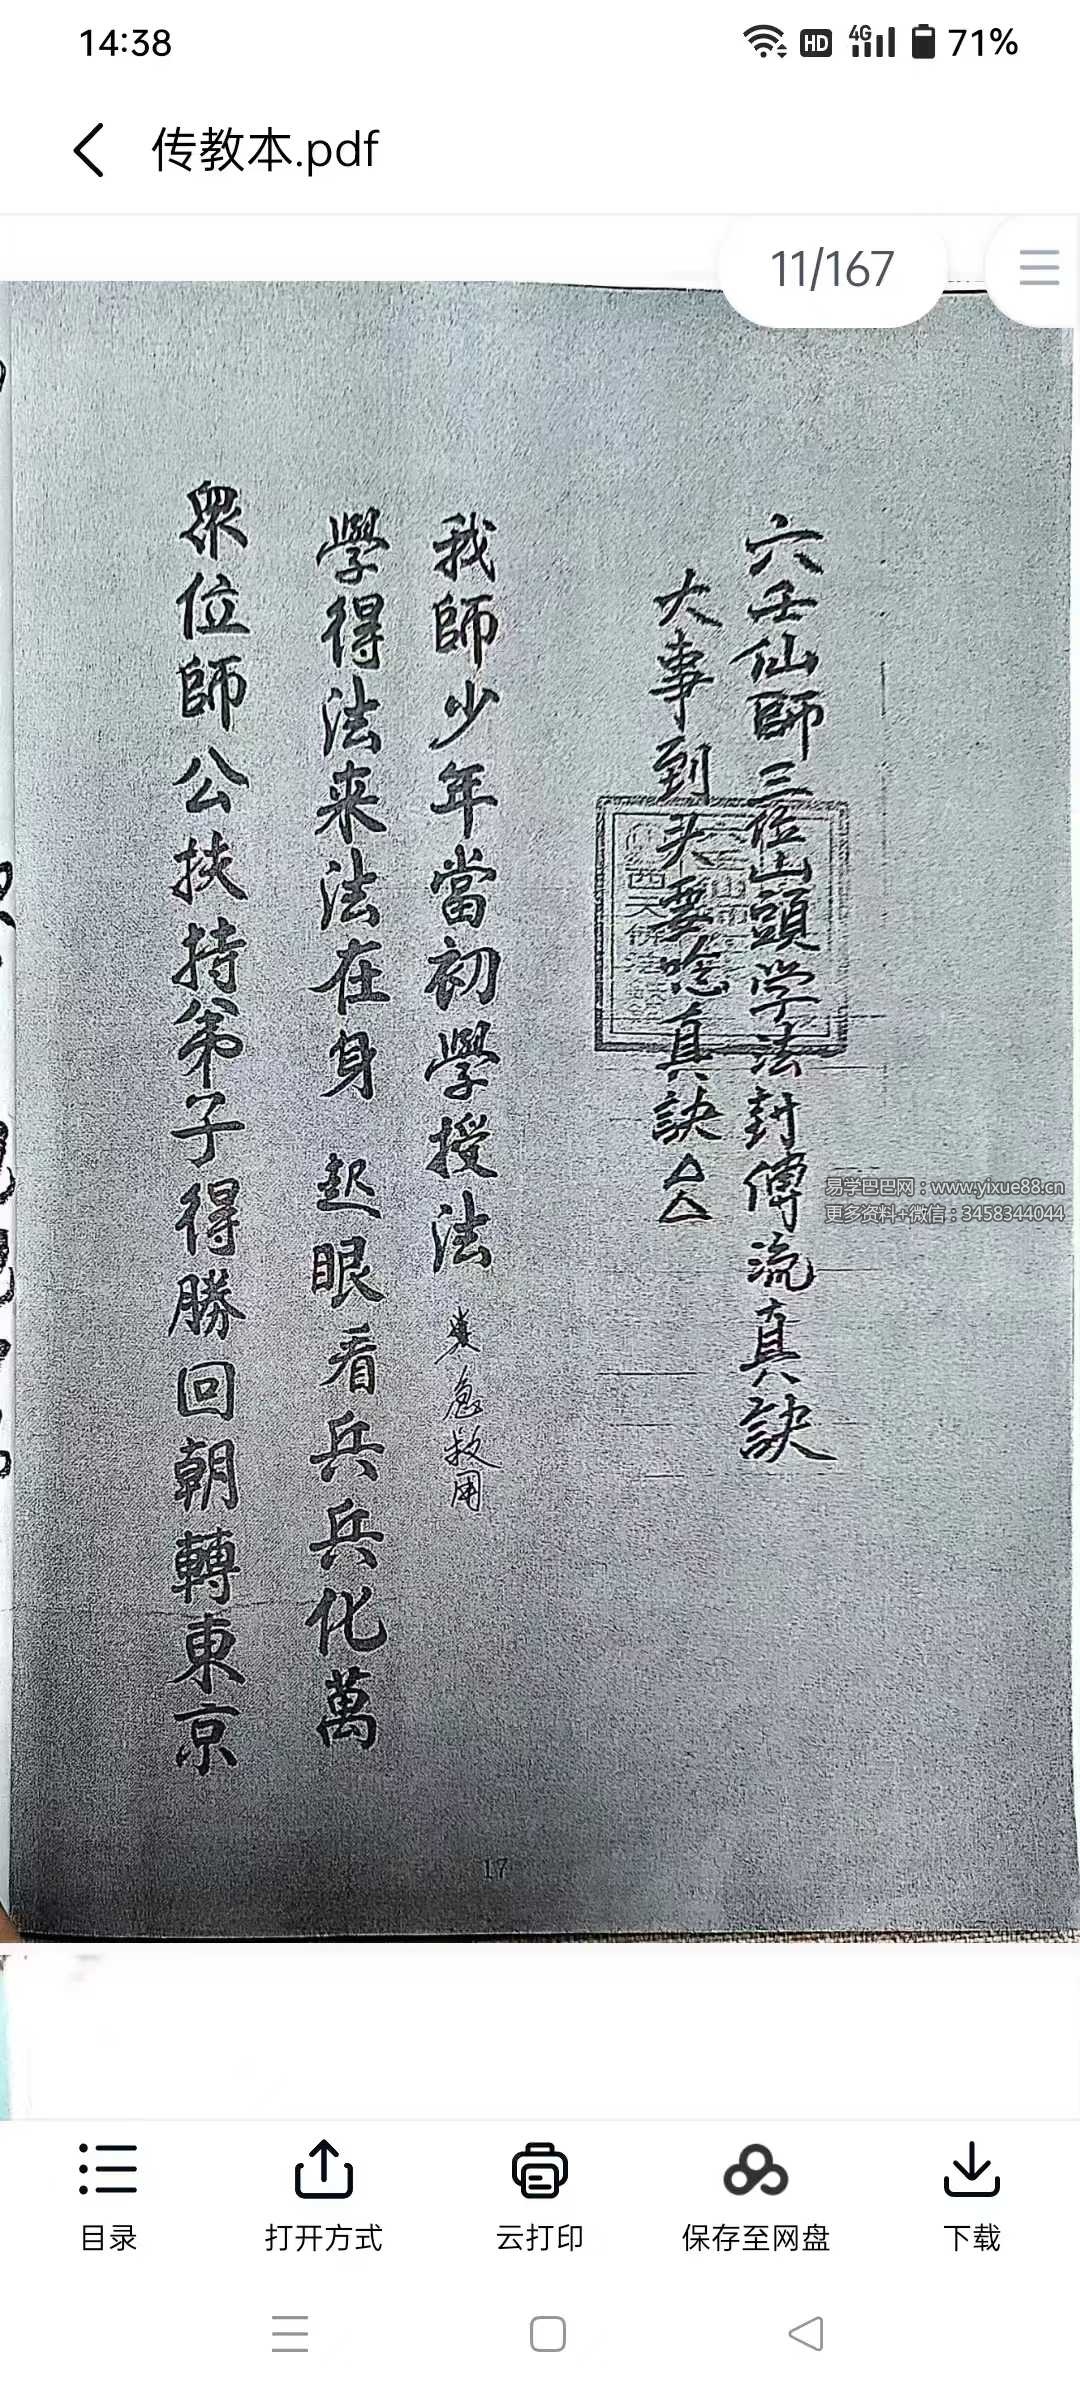 14:38
HD 4G 71%
传教本.pdf
11/167
六壬仙師三位山頭学法封傳流真訣
大事到头要唸真訣△△
我師少年當初學授法
急救用
學得法来法在身 起眼看兵兵化萬
眾位師公扶持弟子得勝回朝轉東京
易学巴巴网：www.yixue88.cn
更多资料+微信：3458344044
17
目录
打开方式
云打印
保存至网盘
下载